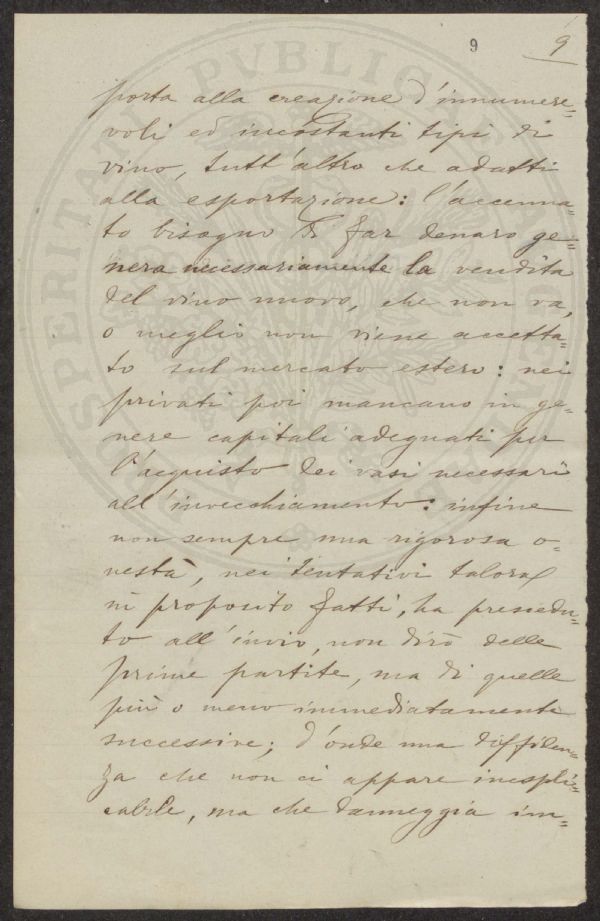 9 9
porta alla creazione d'innumere=
voli ed incostanti tipi di
vino, tutt'altro che adatti
alla esportazione: l'accenna=
to bisogno di far denaro ge=
nera necessariamente la vendita
del vino nuovo, che non va,
o meglio non viene accetta=
to sul mercato estero: nei
privati poi mancano in ge=
nere capitali adeguati per
l'acquisto dei vasi necessari
all'invecchiamento: infine
non sempre una rigorosa o=
nestà, nei tentativi talora
in proposito fatti, ha presiedu=
to all'invio, non dirò delle
prime partite, ma di quelle
più o meno immediatamente
successive; d'onde una diffiden=
za che non ci appare inespli=
cabile, ma che danneggia im=
PVBLICAE
PROSPERITATI